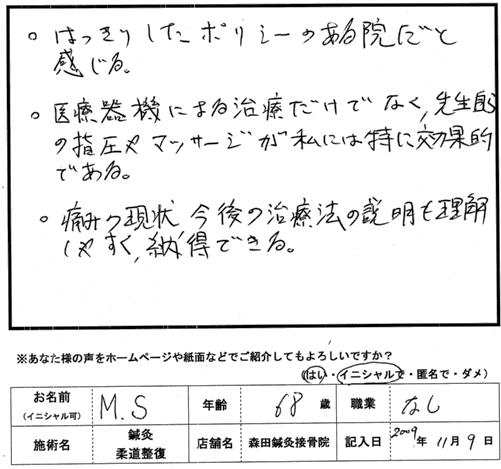 。はっきりしたポリシーのある院だと
感じる。
。医療器機による治療だけでなく、先生自
の指圧やマッサージが私には特に効果的
である。
。痛みの現状 今後の治療法の説明も理解
しやすく、納得できる。
※あなた様の声をホームページや紙面などでご紹介してもよろしいですか？
(はい・イニシャルで・匿名で・ダメ)
お名前 M.S 年齢 68 歳 職業 なし
(イニシャル可)
施術名 鍼灸 柔道整復 店舗名 森田鍼灸接骨院 記入日 2009年 11月 9日